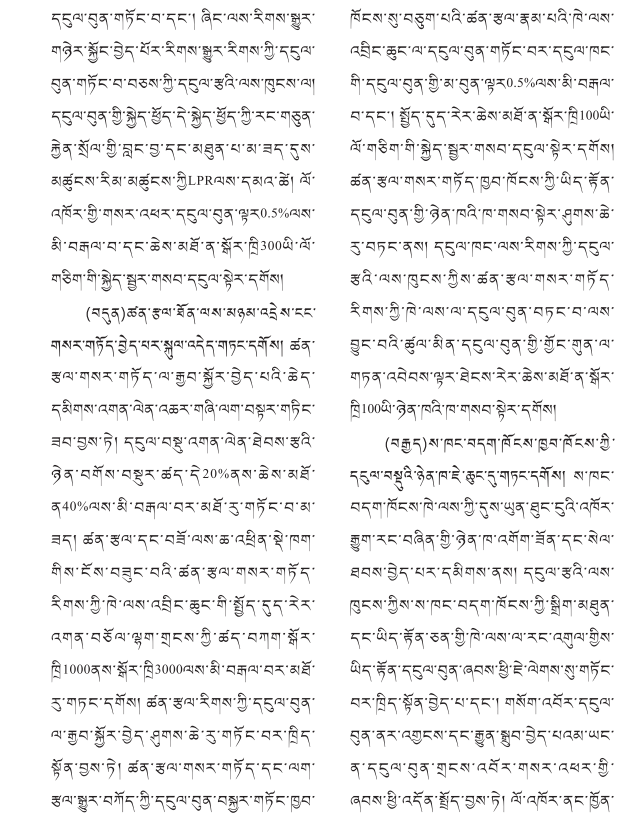 དངུལ་བུན་གཏོང་བ་དང་། ཞིང་ལས་རིགས་སྒྱུར་
གཉེར་སྐྱོང་བྱེད་པོར་རིགས་སྒྱུར་རིགས་ཀྱི་དངུལ་
བུན་གཏོང་བ་བཅས་ཀྱི་དངུལ་རྩའི་ལས་ཁུངས་ལ།
དངུལ་བུན་གྱི་སྐྱེད་ཕྱོད་དེ་སྐྱེད་ཕྱོད་ཀྱི་རང་གཅུན་
རྐྱེན་སྲོལ་གྱི་བླང་བྱ་དང་མཐུན་པ་མ་ཟད་དུས་
མཚུངས་རིམ་མཚུངས་ཀྱིLPRལས་དམའ་ཚེ། ལོ་
འཁོར་གྱི་གསར་འཕར་དངུལ་བུན་ལྟར0.5%ལས་
མི་བརྒལ་བ་དང་ཆེས་མཐོ་ན་སྒོར་ཁྲི300ཡི་ལོ་
གཅིག་གི་སྐྱེད་སྦྱར་གསབ་དངུལ་སྟེར་དགོས།
(བདུན)ཚན་རྩལ་ཐོན་ལས་མཉམ་འདྲེས་ངང་
གསར་གཏོད་བྱེད་པར་སྐུལ་འདེད་གཏང་དགོས། ཚན་
རྩལ་གསར་གཏོད་ལ་རྒྱབ་སྐྱོར་བྱེད་པའི་ཆེད་
དམིགས་འགན་ལེན་འཆར་གཞི་ལག་བསྟར་གཏིང་
ཟབ་བྱས་ཏེ། དངུལ་བསྡུ་འགན་ལེན་ཐེབས་རྩའི་
ཉེན་བགོས་བསྡུར་ཚད་དེ20%ནས་ཆེས་མཐོ་
ན40%ལས་མི་བརྒལ་བར་མཐོ་རུ་གཏོང་བ་མ་
ཟད། ཚན་རྩལ་དང་བཟོ་ལས་ཆ་འཕྲིན་སྡེ་ཁག་
གིས་ངོས་བཟུང་བའི་ཚན་རྩལ་གསར་གཏོད་
རིགས་ཀྱི་ཁེ་ལས་འབྲིང་ཆུང་གི་སྤྱོད་དུད་རེར་
འགན་བཅོལ་ལྷག་གྲངས་ཀྱི་ཚད་བཀག་སྒོར་
ཁྲི1000ནས་སྒོར་ཁྲི3000ལས་མི་བརྒལ་བར་མཐོ་
རུ་གཏང་དགོས། ཚན་རྩལ་རིགས་ཀྱི་དངུལ་བུན་
ལ་རྒྱབ་སྐྱོར་བྱེད་ཤུགས་ཆེ་རུ་གཏོང་བར་ཁྲིད་
སྟོན་བྱས་ཏེ། ཚན་རྩལ་གསར་གཏོད་དང་ལག་
རྩལ་སྒྱུར་བཀོད་ཀྱི་དངུལ་བུན་བསྐྱར་གཏོང་ཁྱབ་
ཁོངས་སུ་བཅུག་པའི་ཚན་རྩལ་རྣམ་པའི་ཁེ་ལས་
འབྲིང་ཆུང་ལ་དངུལ་བུན་གཏོང་བར་དངུལ་ཁང་
གི་དངུལ་བུན་གྱི་མ་བུན་ལྟར0.5%ལས་མི་བརྒལ་
བ་དང་། སྤྱོད་དུད་རེར་ཆེས་མཐོ་ན་སྒོར་ཁྲི100ཡི་
ལོ་གཅིག་གི་སྐྱེད་སྦྱར་གསབ་དངུལ་སྟེར་དགོས།
ཚན་རྩལ་གསར་གཏོད་ཁྱབ་ཁོངས་ཀྱི་ཡིད་རྟོན་
དངུལ་བུན་གྱི་ཉེན་ཁའི་ཁ་གསབ་སྟེར་ཤུགས་ཆེ་
རུ་བཏང་ནས། དངུལ་ཁང་ལས་རིགས་ཀྱི་དངུལ་
རྩའི་ལས་ཁུངས་ཀྱིས་ཚན་རྩལ་གསར་གཏོད་
རིགས་ཀྱི་ཁེ་ལས་ལ་དངུལ་བུན་བཏང་བ་ལས་
བྱུང་བའི་ཚུལ་མིན་དངུལ་བུན་གྱི་གྱོང་གུན་ལ་
གཏན་འབེབས་ལྟར་ཐེངས་རེར་ཆེས་མཐོ་ན་སྒོར་
ཁྲི100ཡི་ཉེན་ཁའི་ཁ་གསབ་སྟེར་དགོས།
(བརྒྱད)ས་ཁང་བདག་ཁོངས་ཁྱབ་ཁོངས་ཀྱི་
དངུལ་བསྡུའི་ཉེན་ཁ་ཇེ་ཆུང་དུ་གཏང་དགོས། ས་ཁང་
བདག་ཁོངས་ཁེ་ལས་ཀྱི་དུས་ཡུན་ཐུང་ངུའི་འཁོར་
རྒྱུག་རང་བཞིན་གྱི་ཉེན་ཁ་འགོག་ཟོན་དང་སེལ་
ཐབས་བྱེད་པར་དམིགས་ནས། དངུལ་རྩའི་ལས་
ཁུངས་ཀྱིས་ས་ཁང་བདག་ཁོངས་ཀྱི་སྒྲིག་མཐུན་
དང་ཡིད་རྟོན་ཅན་གྱི་ཁེ་ལས་ལ་རང་འགུལ་གྱིས་
ཡིད་རྟོན་དངུལ་བུན་ཞབས་ཕྱི་ཇེ་ལེགས་སུ་གཏོང་
བར་ཁྲིད་སྟོན་བྱེད་པ་དང་། གསོག་འབོར་དངུལ་
བུན་ནར་འགྱངས་དང་རྒྱུན་སྒྲུབ་བྱེད་པའམ་ཡང་
ན་དངུལ་བུན་གྲངས་འབོར་གསར་འཕར་གྱི་
ཞབས་ཕྱི་འདོན་སྤྲོད་བྱས་ཏེ། ལོ་འཁོར་ནང་ཁྱོན་